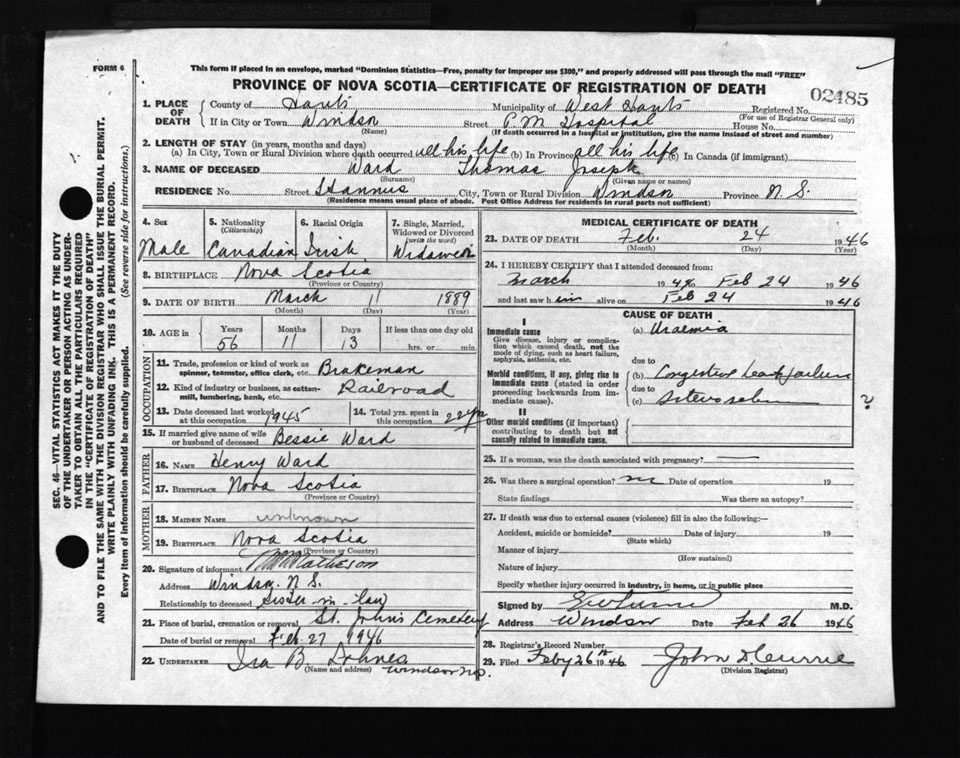 FORM 6
This form if placed in an envelope, marked "Dominion Statistics—Free, penalty for improper use $300," and properly addressed will pass through the mail "FREE"
PROVINCE OF NOVA SCOTIA—CERTIFICATE OF REGISTRATION OF DEATH
02485
1. PLACE OF DEATH
County of Hants Municipality of West Hants Registered No.
(For use of Registrar General only)
If in City or Town Windsor Street P. M. Hospital House No.
(Name) (If death occurred in a hospital or institution, give the name instead of street and number)
2. LENGTH OF STAY (in years, months and days)
(a) In City, Town or Rural Division where death occurred all his life (b) In Province all his life (c) In Canada (if immigrant)
3. NAME OF DECEASED Ward Thomas Joseph
(Surname) (Given name or names)
RESIDENCE No. Street Stannus City, Town or Rural Division Windsor Province N.S.
(Residence means usual place of abode. Post Office Address for residents in rural parts not sufficient)
4. Sex
Male
5. Nationality
(Citizenship)
Canadian
6. Racial Origin
Irish
7. Single, Married, Widowed or Divorced
(write the word)
Widower
8. BIRTHPLACE Nova Scotia
(Province or Country)
9. DATE OF BIRTH March 11 1889
(Month) (Day) (Year)
10. AGE in
Years Months Days If less than one day old
56 11 13 hrs. or min.
OCCUPATION
11. Trade, profession or kind of work as
spinner, teamster, office clerk, etc. Brakeman
12. Kind of industry or business, as cotton-
mill, lumbering, bank, etc. Railroad
13. Date deceased last worked
at this occupation 1945
14. Total yrs. spent in
this occupation 22 yrs
15. If married give name of wife
or husband of deceased Bessie Ward
FATHER
16. NAME Henry Ward
17. BIRTHPLACE Nova Scotia
(Province or Country)
MOTHER
18. MAIDEN NAME unknown
19. BIRTHPLACE Nova Scotia
(Province or Country)
20. Signature of informant Matheson
Address Windsor. N. S.
Relationship to deceased Sister-in-law
21. Place of burial, cremation or removal St. John's Cemetery
Date of burial or removal Feb. 27 1946
22. UNDERTAKER Ira B. Windsor N.S.
(Name and address)
MEDICAL CERTIFICATE OF DEATH
23. DATE OF DEATH Feb. 24 1946
(Month) (Day) (Year)
24. I HEREBY CERTIFY that I attended deceased from:
March 19 Feb 24 1946
and last saw him alive on Feb 24 1946
CAUSE OF DEATH
I
Immediate cause
Give disease, injury or complica-
tion which caused death, not the
mode of dying, such as heart failure,
asphyxia, asthenia, etc.
(a) Uraemia
due to
Morbid conditions, if any, giving rise to
immediate cause (stated in order
proceeding backwards from im-
mediate cause).
(b) Congestive heart failure
due to
(c) ?
II
Other morbid conditions (if important)
contributing to death but not
causally related to immediate cause.
25. If a woman, was the death associated with pregnancy? —
26. Was there a surgical operation? no Date of operation 19
State findings Was there an autopsy?
27. If death was due to external causes (violence) fill in also the following:—
Accident, suicide or homicide? Date of injury 19
(State which)
Manner of injury
(How sustained)
Nature of injury
Specify whether injury occurred in industry, in home, or in public place
Signed by M.D.
Address Windsor Date Feb 26 1946
28. Registrar's Record Number
29. Filed Feby 26th 1946 John D. Currie
(Division Registrar)
SEC. 46—VITAL STATISTICS ACT MAKES IT THE DUTY
OF THE UNDERTAKER OR PERSON ACTING AS UNDER-
TAKER TO OBTAIN ALL THE PARTICULARS REQUIRED
IN THE "CERTIFICATE OF REGISTRATION OF DEATH"
AND TO FILE THE SAME WITH THE DIVISION REGISTRAR WHO SHALL ISSUE THE BURIAL PERMIT.
WRITE PLAINLY WITH UNFADING INK. THIS IS A PERMANENT RECORD.
Every item of information should be carefully supplied. (See reverse side for instructions.)